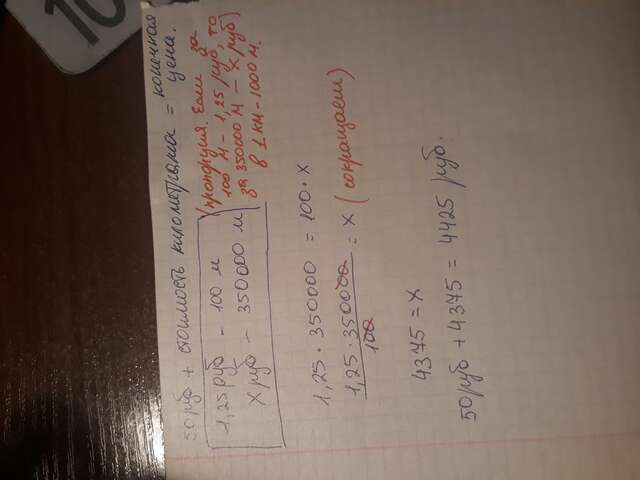 50 руб + стоимость километража = конечная цена.
1,25 руб - 100 м
X руб - 350000 м
(пропорция. Если за
100 м - 1,25 руб, то
за 350000 м - X руб)
в 1 км - 1000 м.
1,25 · 350000 = 100 · X
1,25 · 350000 / 100 = X (сокращаем)
4375 = X
50 руб + 4375 = 4425 руб.